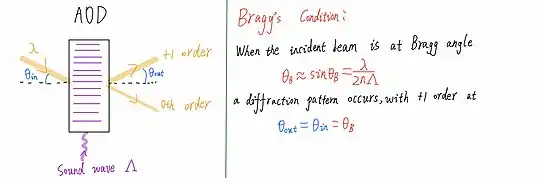 AOD
λ
+1 order
θin
θout
0th order
Sound wave Λ
Bragg's Condition:
When the incident beam is at Bragg angle
θB ≈ sinθB = λ/2nΛ
a diffraction pattern occurs, with +1 order at
θout = θin = θB